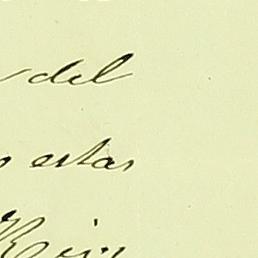 del
estas